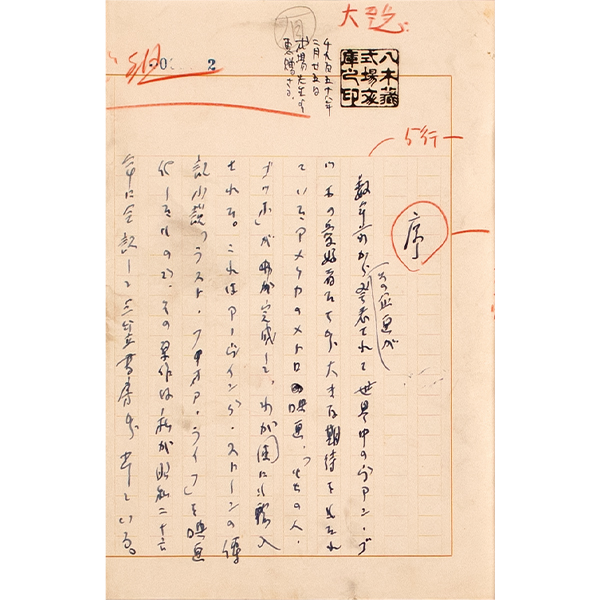 大題
八木藏
式場家
庫之印
千九百五十八年
二月廿五日
式場先生より
恵贈さる。
組
2
5行
序
数年前からその企画が発表されて世界中のヴァン・ゴ
ッホの愛好者たちから大きな期待をよせられ
ているアメリカのメトロの映画・「炎の人・
ゴッホ」が完成して、わが国にも輸入
される。これはアーヴィング・ストーンの傳
記小説「ラスト・フォア・ライフ」を映画
化したもので、その原作は私が昭和二十六
年に全訳して三笠書房から出している。